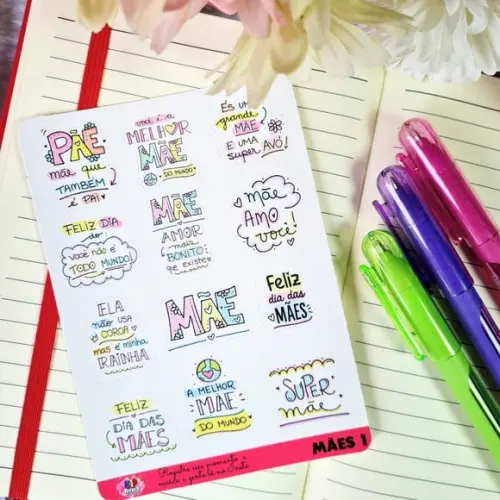 PÃE
mãe que
TAMBÉM
é PAI
você é a
MELHOR
MÃE
DO MUNDO
ÉS UMA
grande
MÃE
E UMA
super AVÓ!
FELIZ DIA
do:
você não é
TODO MUNDO!
MÃE
AMOR
mais
BONITO
que existe
mãe
AMO
você!
ELA
não USA
COROA
mas é minha
RAINHA
MÃE
Feliz
dia das
MÃES
FELIZ
DIA DAS
MÃES
A MELHOR
MÃE
DO MUNDO
SUPER
mãe
MÃES 1
Registre seu momento,